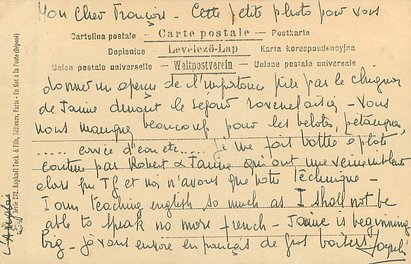 Mon cher François - Cette petite photo pour vous
Cartolina postale - Carte postale - Postkarte
Dopisnice Levelező-Lap Karta korespondencyjna
Union postale universelle Weltpostverein Unione postale universale
donner un aperçu de l'importance prise par le chignon
de Janine durant le séjour - Vous
nous manquez beaucoup pour les belotes, pétanques,
..... d'eau etc.... Je me fait battre à plate
couture par Robert & Janine qui ont une veine
alors que et moi n'avons que notre technique -
I am teaching english so much as I shall not be
able to speak no more french - Janine is beginning
too - je vous envoie en français de gros baisers
Serie 292. Raphael Tuck & Fils, Editeurs, Paris